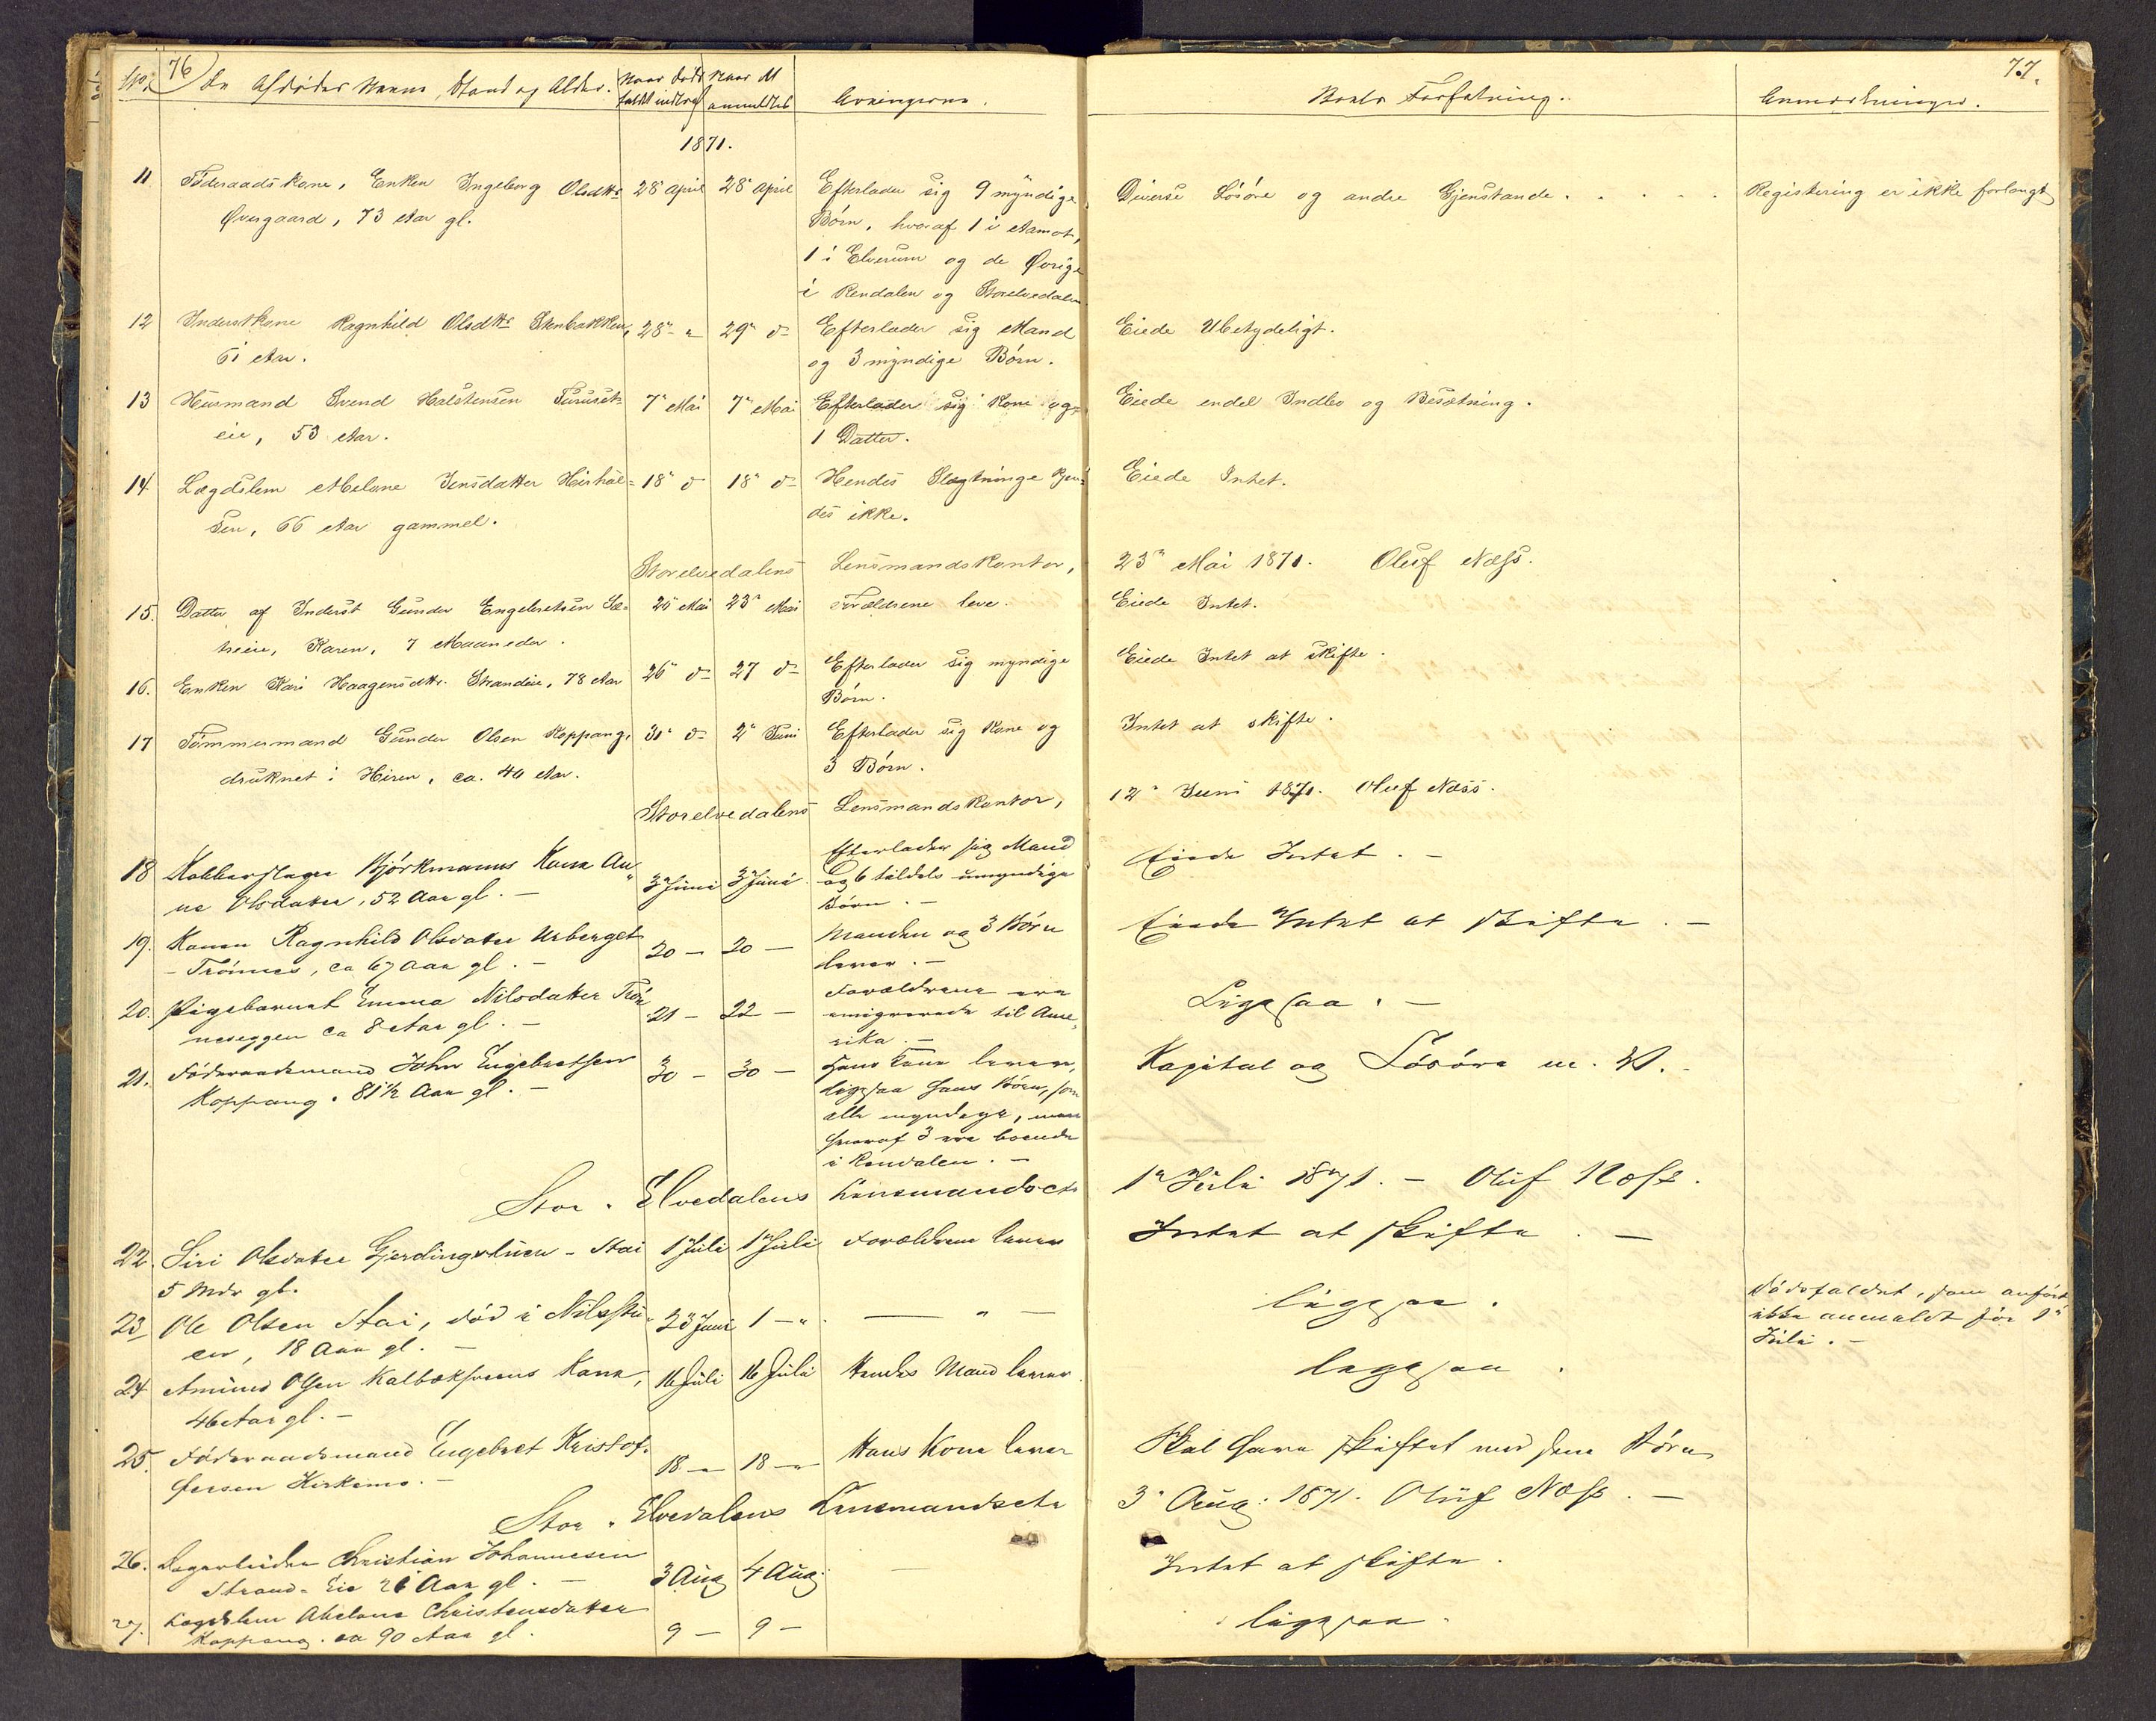 76
77.
No. Den Afdødes Navn, Stand og Alder. Naar Døds- faldet indtraf Naar det anmeldtes Arvingerne. Boets Forfatning. Anmærkninger.
1871.
11 Föderaadskone, Enken Ingeborg Olsdtr 28 April 28 April Efterlader sig 9 myndige Diverse Lösöre og andre Gjenstande. . . . . Registering er ikke forlangt
Øvergaard, 73 Aar gl. Börn, hvoraf 1 i Aamot,
1 i Elverum og de Øvrige
i Rendalen og Storelvedalen
12 Inderstkone Ragnhild Olsdtr Stenbakken, 28 " 29 d Efterlader sig Mand Eiede Ubetydeligt.
61 Aar. og 3 myndige Börn.
13 Husmand Svend Halstensen Furuset- 7 Mai 7 Mai Efterlader sig Kone og Eiede endel Indbo og Besætning.
eie, 53 Aar. 1 Datter.
14. Lægdslem Melane Jensdatter 18 d 18 d Hendes Slægtninge kjen- Eiede Intet.
sen, 66 Aar gammel. des ikke.
Storelvedalens Lensmandskontor, 23 Mai 1871. Oluf Næss.
15. Datter af Inderst Gunder Engebretsen Sæ- 25 Mai 23 Mai Forældrene leve. Eiede Intet.
treeie, Karen, 7 Maaneder.
16. Enken Kari Haagensdtr. Strandeie, 78 Aar 26 d 27 d Efterlader sig myndige Eiede Intet at skifte.
Börn.
17 Tömmermand Gunder Olsen Koppang, 31 d 2 Juni Efterlader sig Kone og Intet at skifte.
druknet i Hiren, ca. 40 Aar. 3 Börn.
Storelvedalens Lensmandskontor, 12 Juni 1871. Oluf Næss.
Efterlader sig Mand
18 Kobberslager Björkmanns Kone An- 3 Juni 3 Juni og 6 tildels umyndige Eiede Intet. –
ne Olsdatter, 52 Aar gl. – Börn. –
19. Konen Ragnhild Olsdatter Urberget 20 – 20 – Manden og 3 Börn Eiede Intet at skifte. –
– Trönnes, ca 67 Aar gl. – lever. –
20. Pigebarnet Emma Nilsdatter Trön- 21 – 22 – Forældrene ere Ligesaa. –
neseggen ca 8 Aar gl. – emigrerede til Ame-
rika. –
21. Föderaadsmand John Engebretsen 30 – 30 – Hans Kone lever, Kapital og Lösöre m. V. –
Koppang. 81½ Aar gl. – ligesaa hans Börn, som
alle myndige, men
hvoraf 3 ere boende
i Rendalen. –
Stor-Elvedalens Lensmandsct 1 Juli 1871. – Oluf Næss.
22. Siri Olsdatter Gjerdingstuen – Stai 1 Juli 1 Juli Forældrene lever Intet at skifte. –
5 Mdr gl.
23 Ole Olsen Stai, död i Nilsstu- 23 Juni 1 – " – " – ligesaa. Dödsfaldet, som anfört
en, 18 Aar gl. – ikke anmeldt för 1
Juli. –
24 Amund Olsen Kalbækhvens Kone, 16 Juli 16 Juli Hendes Mand lever. ligesaa.
46 Aar gl. –
25. Föderaadsmand Engebret Kristof- 18 – 18 – Hans Kone lever Skal have skiftet med sine Börn
fersen Kirkemo. –
Stor-Elvedalens Lensmandsct 3 Aug: 1871. Oluf Næss. –
26. Dagarbeider Christian Johannesen 3 Aug 4 Aug. – Intet at skifte.
Strand-Eie Aar gl. –
27. Lægdslem Abelone Christensdatter 9 – 9 – ligesaa.
Koppang. ca 90 Aar gl.